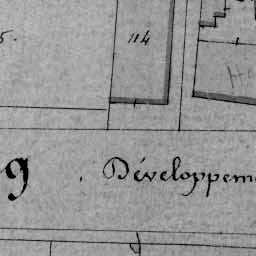 5.
114
9 . Développem